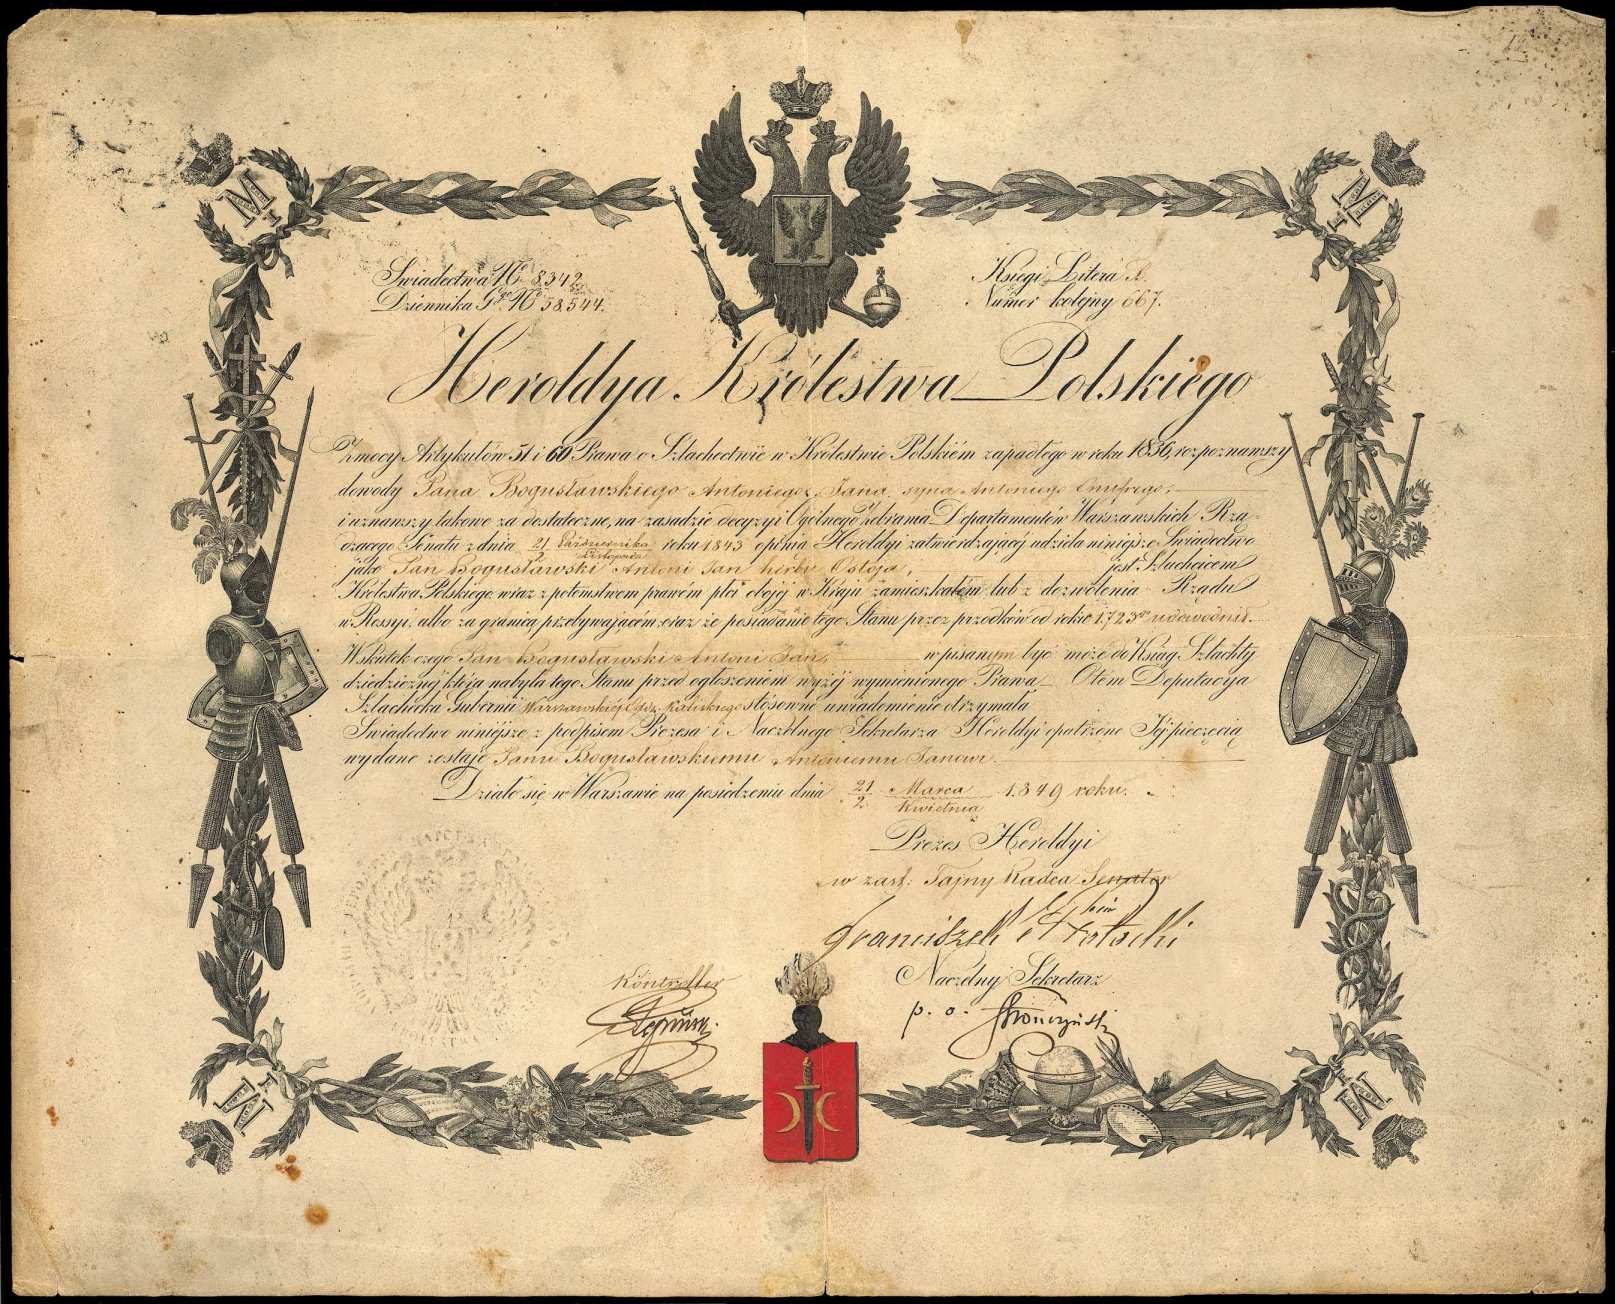 Świadectwa No 8342
Dziennika Gn. No 58544.
Księgi Litera B.
Numer kolejny 667.
Heroldya Królestwa Polskiego
Z mocy Artykułów 51 i 60 Prawa o Szlachectwie w Królestwie Polskiém zapadłego w roku 1836, rozpoznawszy
dowody Pana Bogusławskiego Antoniego, Jana syna Antoniego Onufrego,
i uznawszy takowe za dostateczne, na zasadzie decyzyi Ogólnego Zebrania Departamentów Warszawskich Rzą-
dzącego Senatu z dnia 21 Października / 2 Listopada roku 1843 opinią Heroldyi zatwierdzającéj udziela niniejsze Świadectwo
jako Pan Bogusławski Antoni Jan herbu Ostoja, jest Szlachcicem
Królestwa Polskiego wraz z potomstwem prawém płci obojéj w Kraju zamieszkałém lub z dozwolenia Rządu
w Rossyi, albo za granicą przebywającém, oraz że posiadanie tego Stanu przez przodków od roku 1723go udowodnił.
W skutek czego Pan Bogusławski Antoni Jan, wpisanym być może do Ksiąg Szlachty
dziedzicznéj która nabyła tego Stanu przed ogłoszeniem wyżéj wymienionego Prawa O tém Deputacyja
Szlachecka Gubernii Warszawskiéj Odz. Kaliskiego stósowne uwiadomienie otrzymała
Świadectwo niniejsze z podpisem Prezesa i Naczelnego Sekretarza Heroldyi opatrzone Jéj pieczęcią
wydane zostaje Panu Bogusławskiemu Antoniemu Janowi.
Działo się w Warszawie na posiedzeniu dnia 21 Marca / 2 Kwietnia 1849 roku.
Prezes Heroldyi
w zast: Tajny Radca Senator
Franciszek Potocki
Kontroller
Naczelny Sekretarz
p. o.